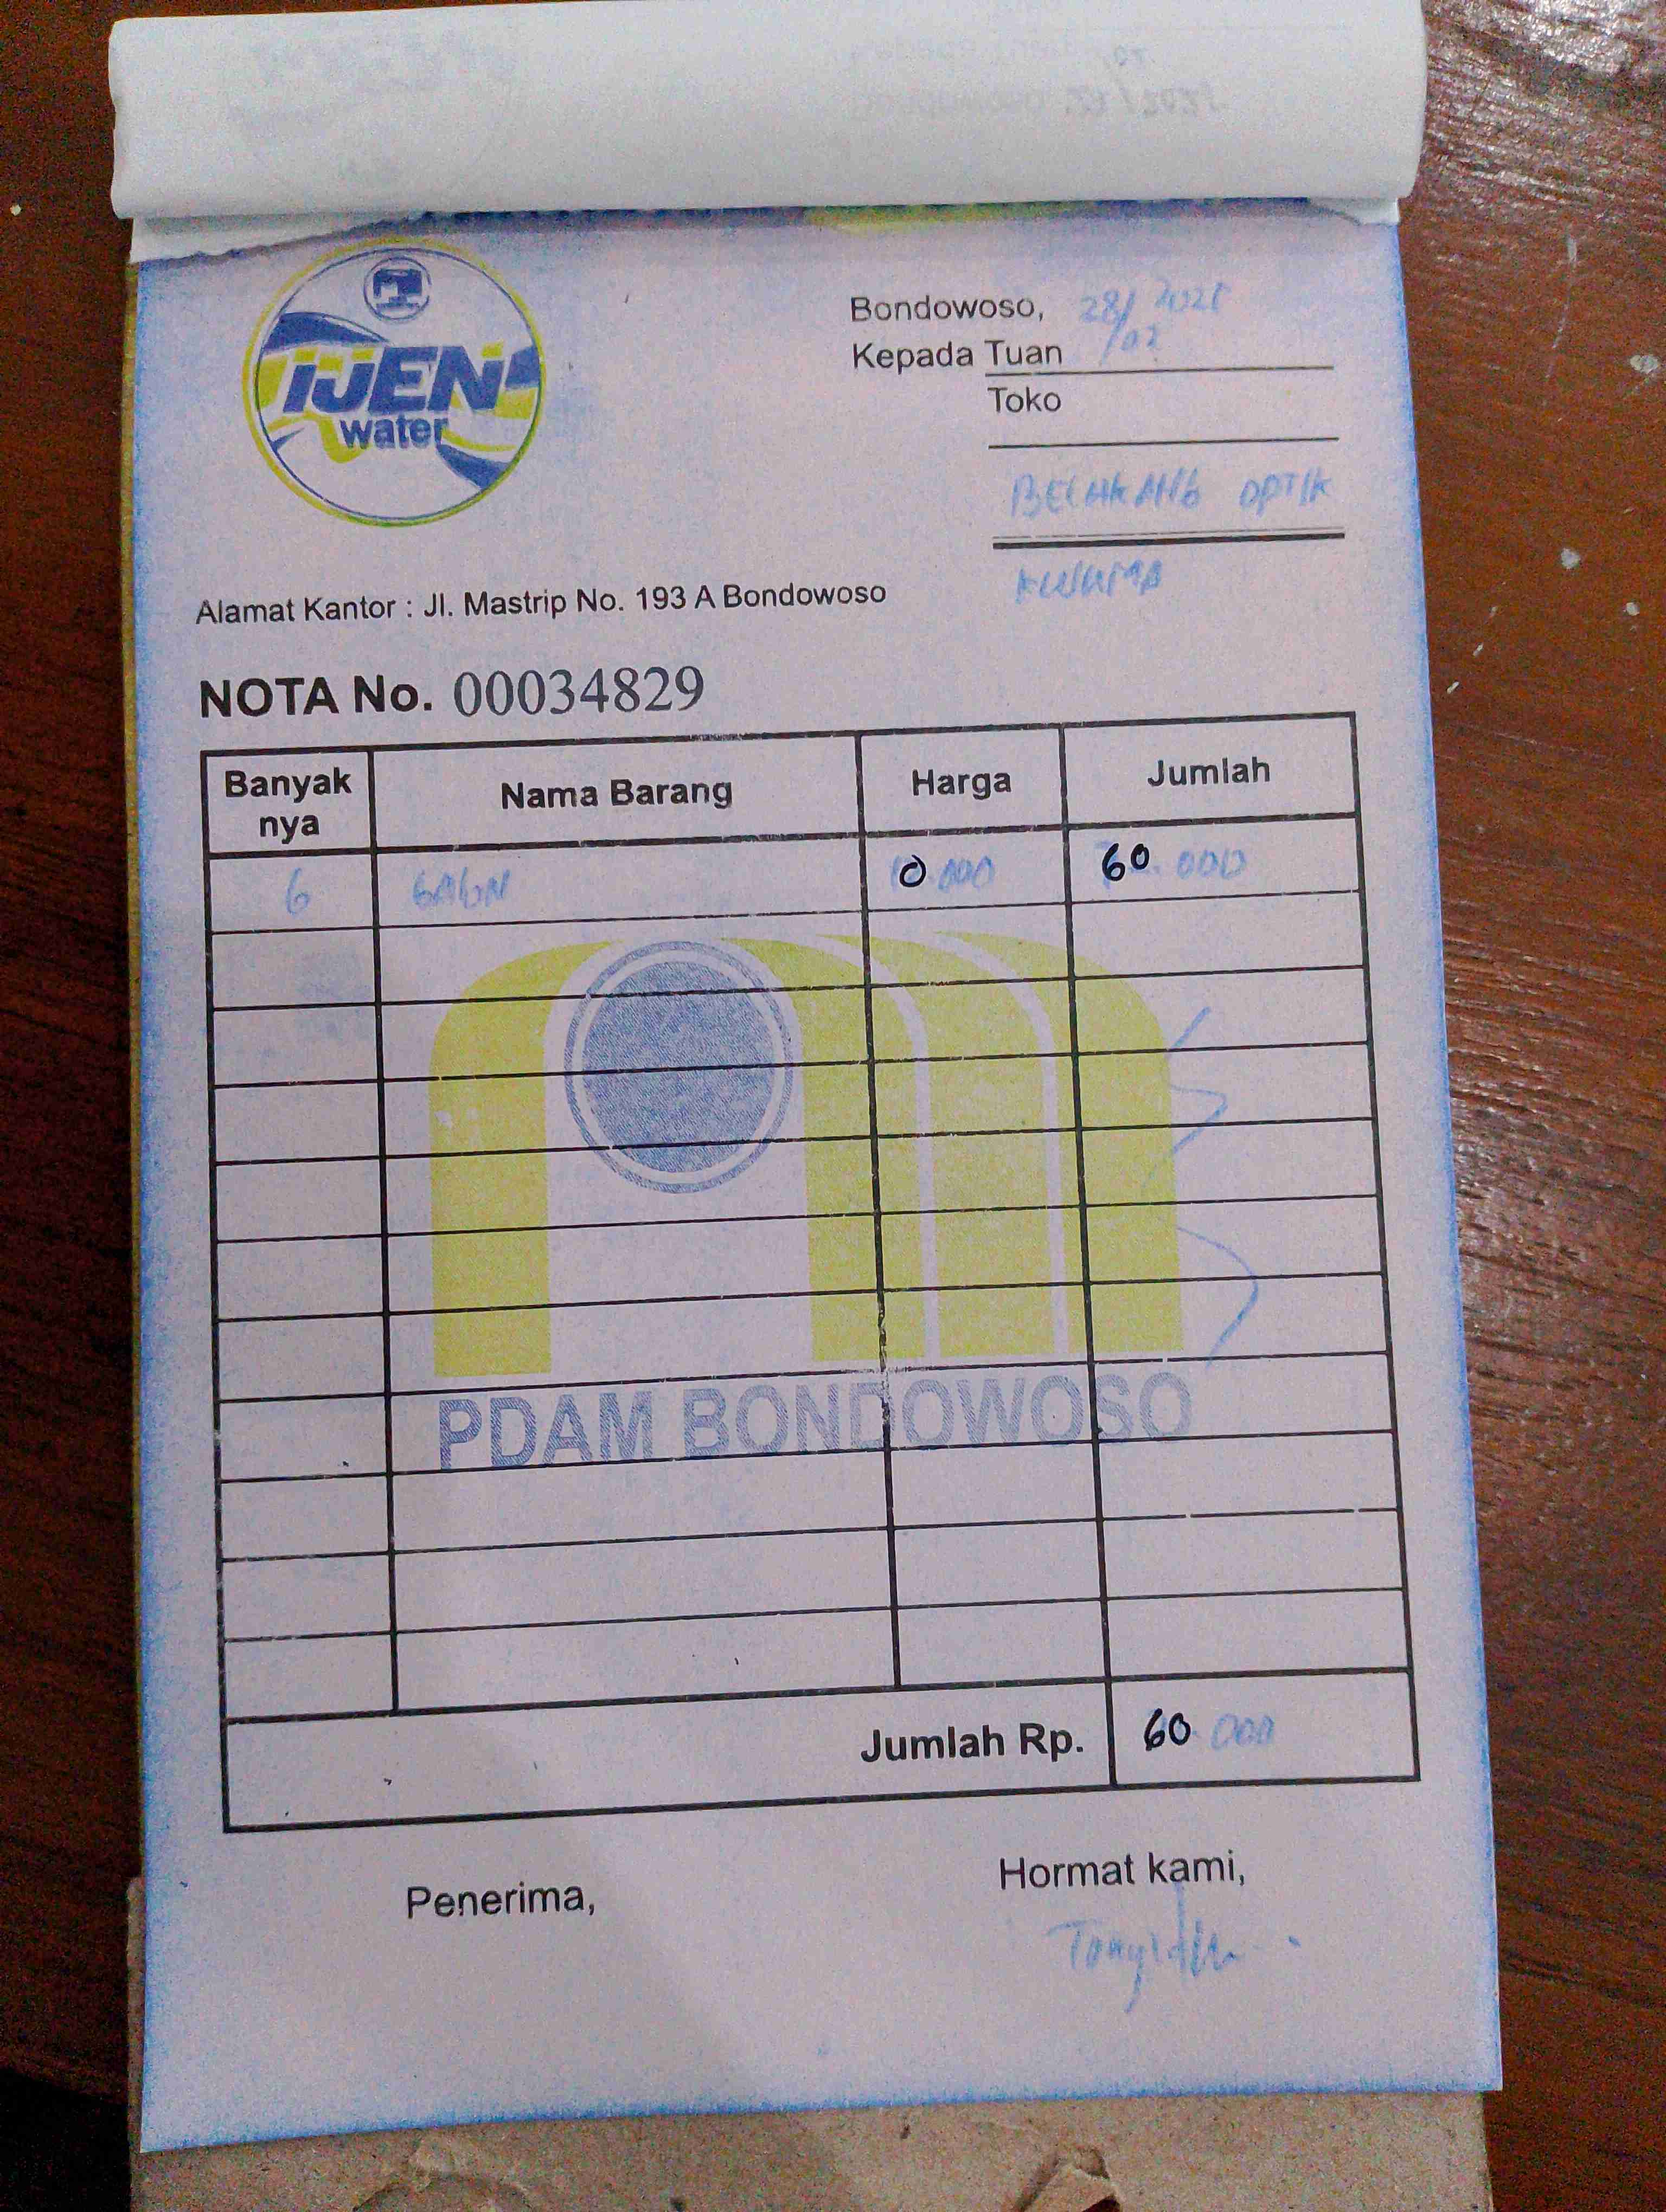 IJEN
water
Bondowoso, 28/02 2021
Kepada Tuan
Toko
BELAKANG OPTIK
KUSUMA
Alamat Kantor : Jl. Mastrip No. 193 A Bondowoso
NOTA No. 00034829
Banyak nya Nama Barang Harga Jumlah
6 GALON 10.000 60.000
PDAM BONDOWOSO
Jumlah Rp. 60.000
Penerima, Hormat kami,